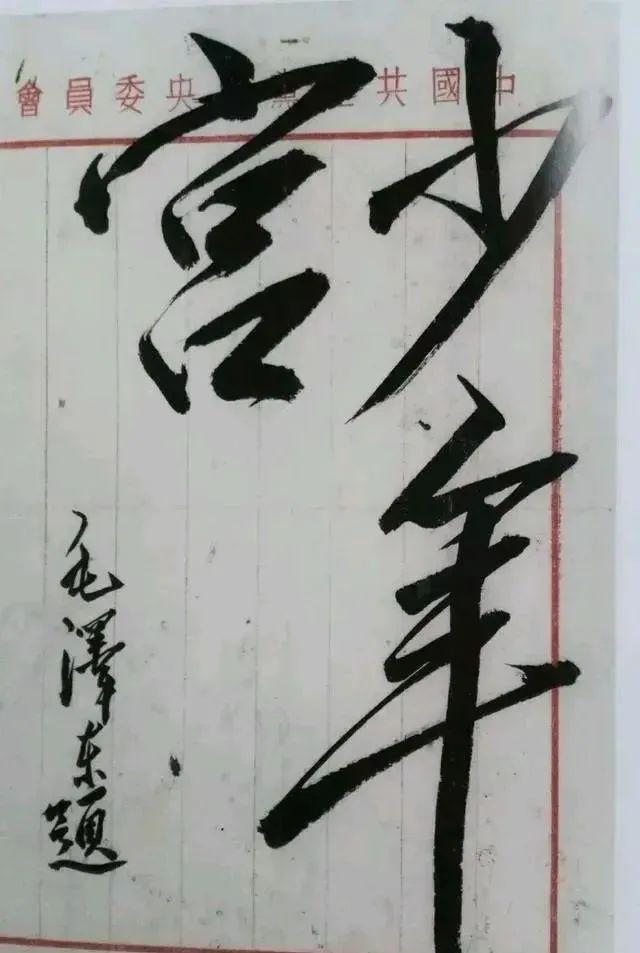 中國共產黨央委員會
少年
宫
毛澤東題